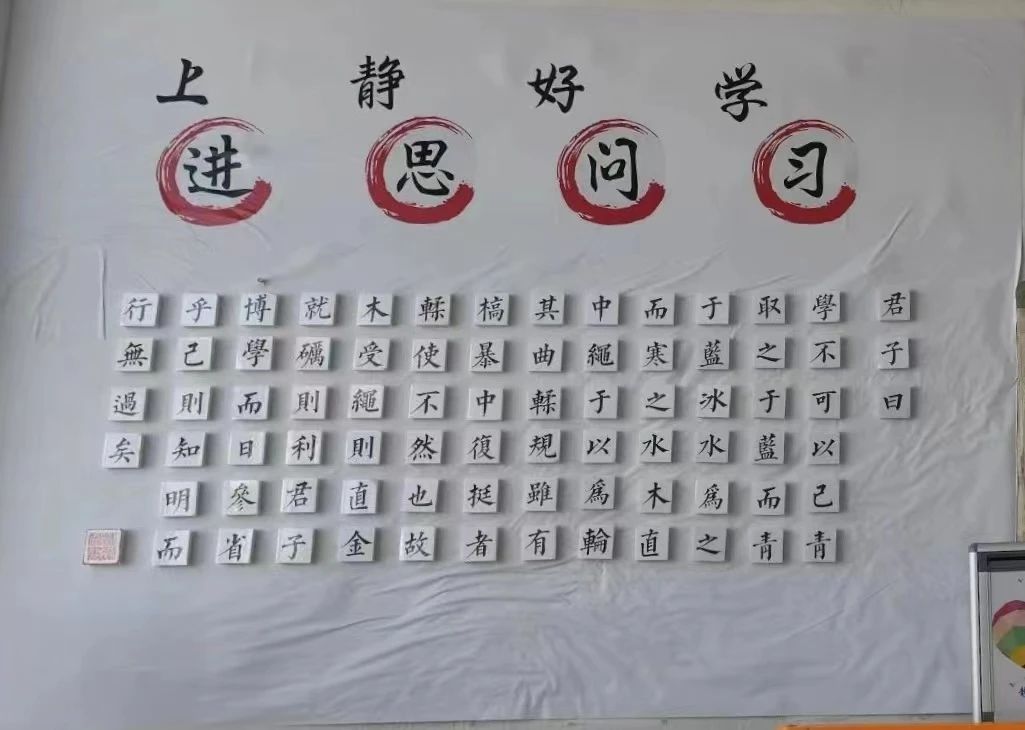 学习
好问
静思
上进
君子曰
學不可以己青
取之于藍而青
于藍冰水爲之
而寒之水木直
中繩于以爲輪
其曲輮規雖有
槁暴中復挺者
輮使不然也故
木受繩則直金
就礪則利君子
博學而日參省
乎己則知明而
行無過矣